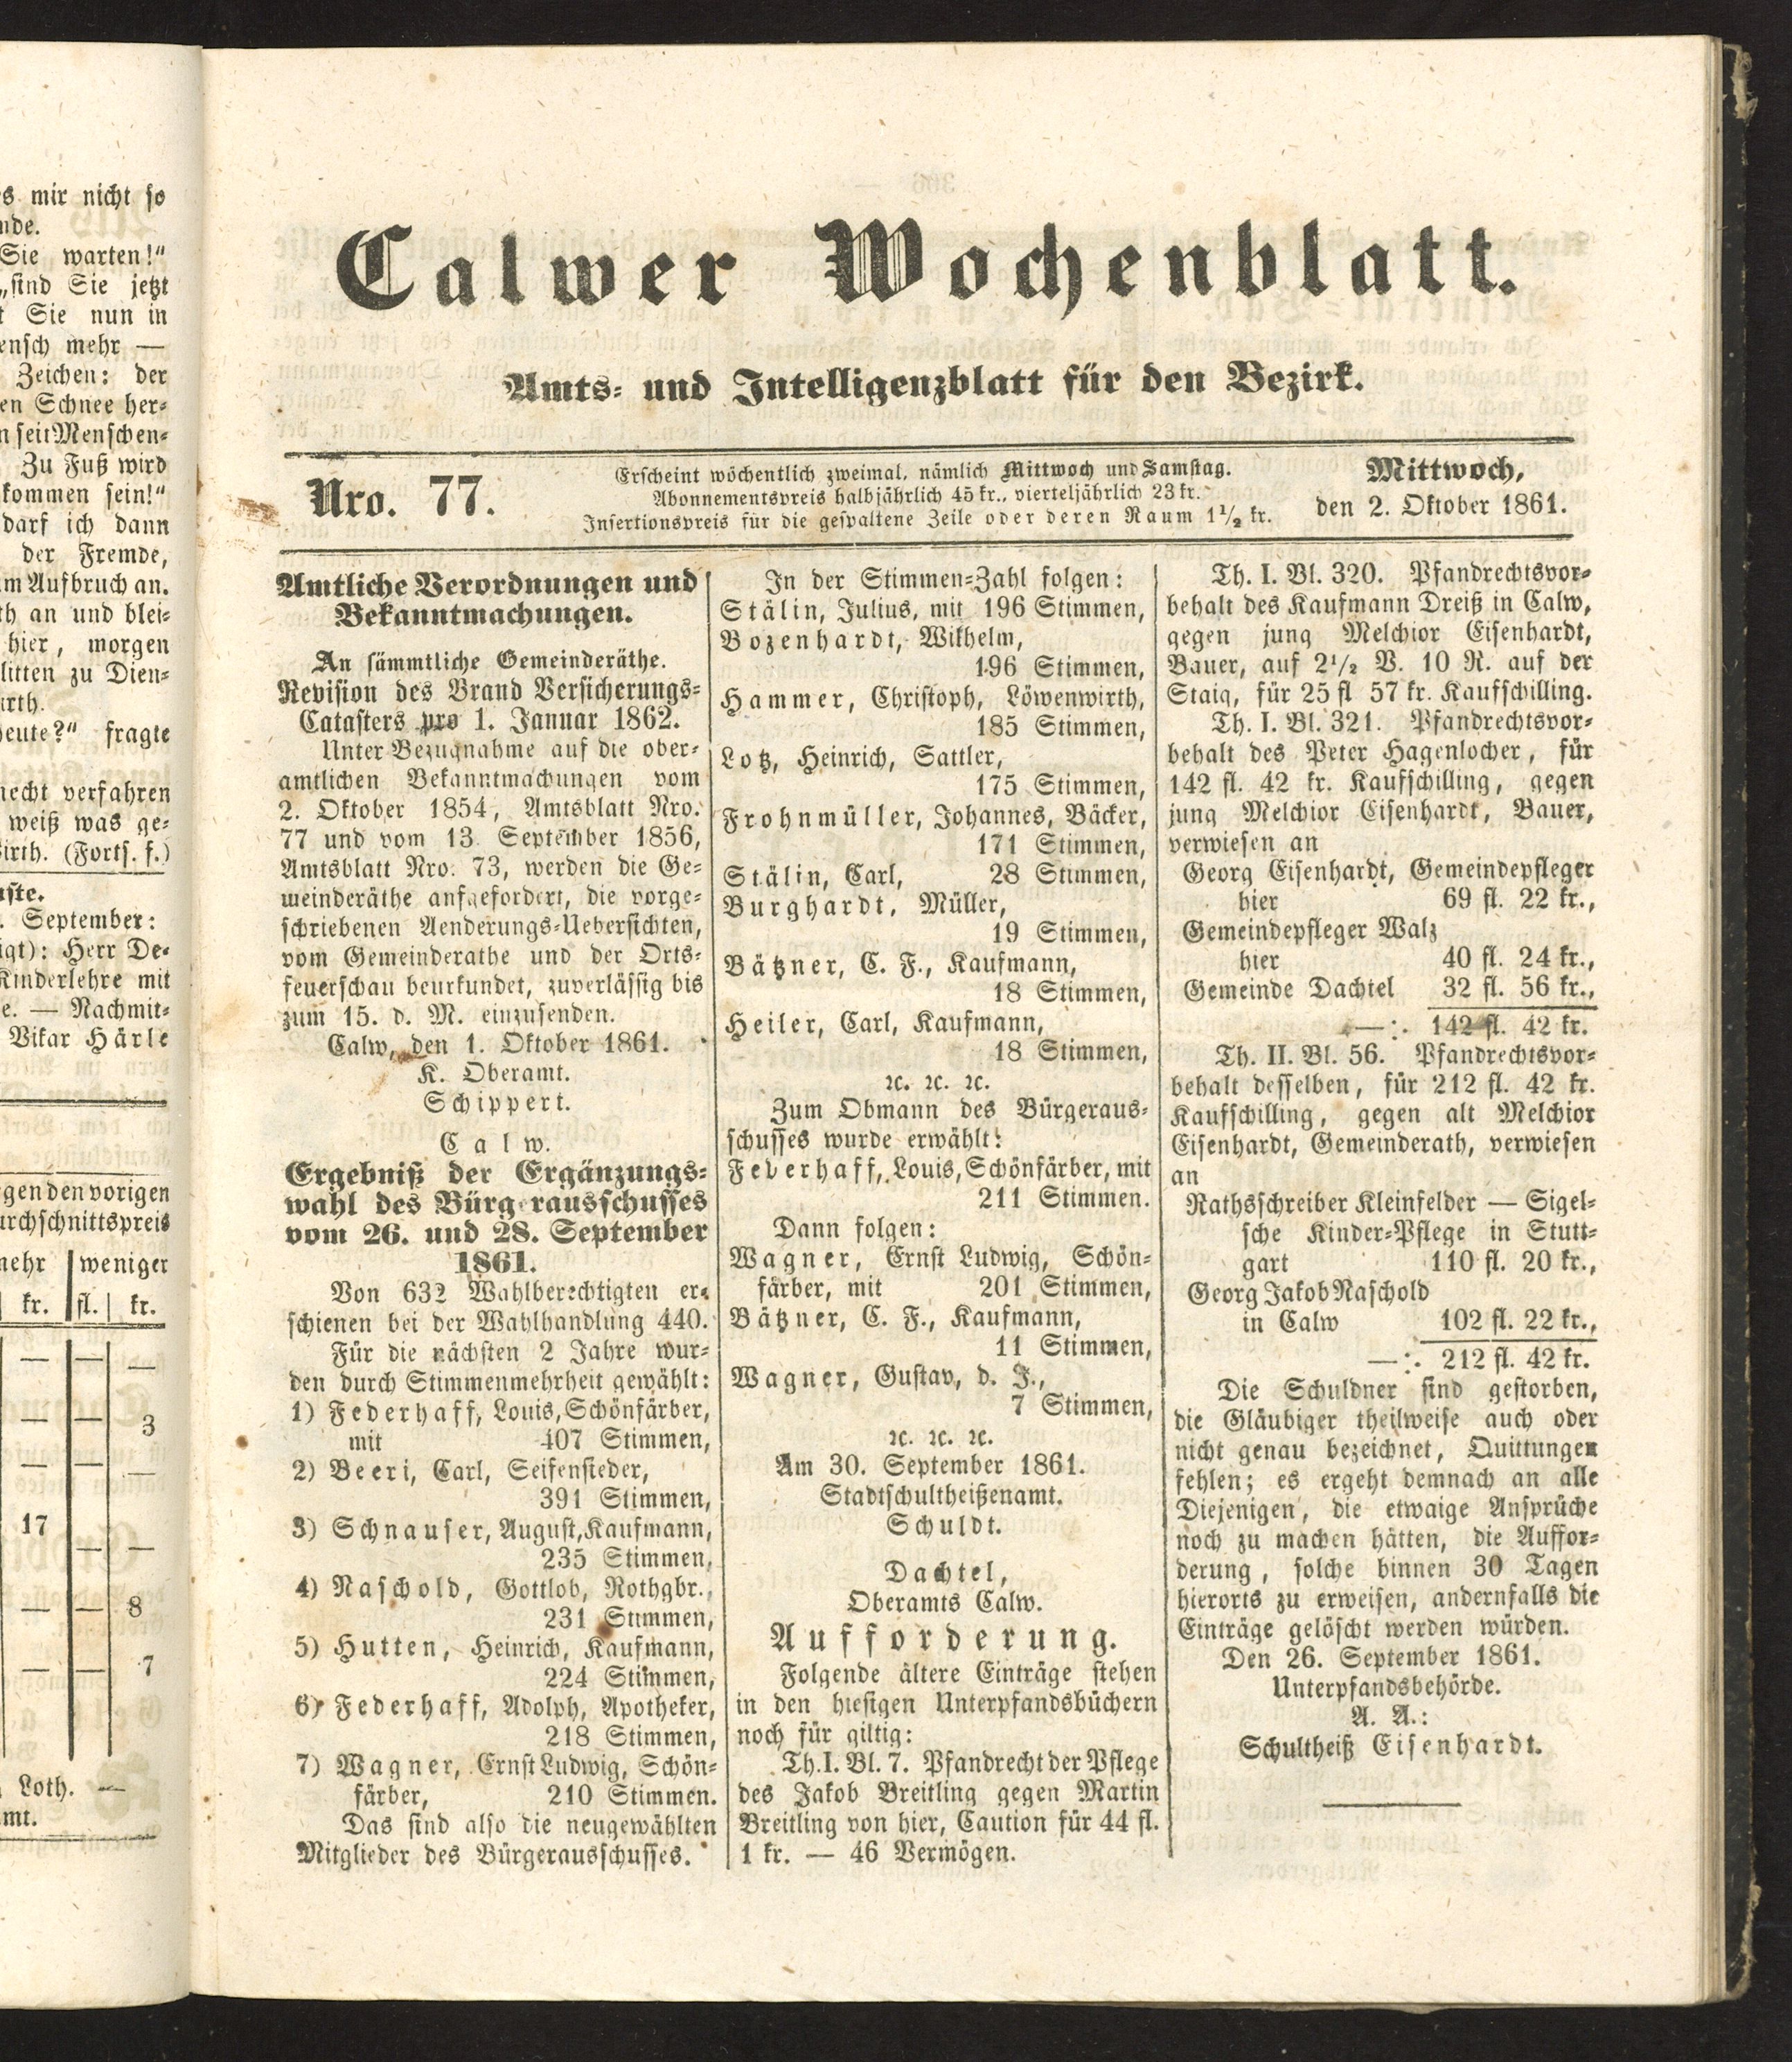 s mir nicht so
nde.
Sie warten!“
„sind Sie jetzt
t Sie nun in
ensch mehr —
Zeichen: der
en Schnee her-
n seit Menschen-
Zu Fuß wird
kommen sein!“
darf ich dann
der Fremde,
m Aufbruch an.
th an und blei-
hier, morgen
litten zu Dien-
irth.
eute?“ fragte
necht verfahren
weiß was ge-
irth. (Forts. f.)
nste.
. September:
igt): Herr De-
Kinderlehre mit
e. — Nachmit-
Vikar Härle
gen den vorigen
urchschnittspreis
mehr weniger
kr. fl. kr.
— — —
— — 3
— — —
17 — —
— — 8
— — 7
Loth. —
mt.
Calwer Wochenblatt.
Amts- und Intelligenzblatt für den Bezirk.
Nro. 77.
Erscheint wöchentlich zweimal, nämlich Mittwoch und Samstag.
Abonnementspreis halbjährlich 45 kr., vierteljährlich 23 kr.
Insertionspreis für die gespaltene Zeile oder deren Raum 1 1/2 kr.
Mittwoch,
den 2. Oktober 1861.
Amtliche Verordnungen und
Bekanntmachungen.
An sämmtliche Gemeinderäthe.
Revision des Brand Versicherungs-
Catasters pro 1. Januar 1862.
Unter Bezugnahme auf die ober-
amtlichen Bekanntmachungen vom
2. Oktober 1854, Amtsblatt Nro.
77 und vom 13. September 1856,
Amtsblatt Nro. 73, werden die Ge-
meinderäthe aufgefordert, die vorge-
schriebenen Aenderungs-Uebersichten,
vom Gemeinderathe und der Orts-
feuerschau beurkundet, zuverlässig bis
zum 15. d. M. einzusenden.
Calw, den 1. Oktober 1861.
K. Oberamt.
Schippert.
Calw.
Ergebniß der Ergänzungs-
wahl des Bürg rausschusses
vom 26. und 28. September
1861.
Von 632 Wahlberechtigten er-
schienen bei der Wahlhandlung 440.
Für die nächsten 2 Jahre wur-
den durch Stimmenmehrheit gewählt:
1) Federhaff, Louis, Schönfärber,
mit 407 Stimmen,
2) Beeri, Carl, Seifensieder,
391 Stimmen,
3) Schnaufer, August, Kaufmann,
235 Stimmen,
4) Naschold, Gottlob, Rothgbr.,
231 Stimmen,
5) Hutten, Heinrich, Kaufmann,
224 Stimmen,
6) Federhaff, Adolph, Apotheker,
218 Stimmen,
7) Wagner, Ernst Ludwig, Schön-
färber, 210 Stimmen.
Das sind also die neugewählten
Mitglieder des Bürgerausschusses.
In der Stimmen-Zahl folgen:
Stälin, Julius, mit 196 Stimmen,
Bozenhardt, Wilhelm,
196 Stimmen,
Hammer, Christoph, Löwenwirth,
185 Stimmen,
Lotz, Heinrich, Sattler,
175 Stimmen,
Frohnmüller, Johannes, Bäcker,
171 Stimmen,
Stälin, Carl, 28 Stimmen,
Burghardt, Müller,
19 Stimmen,
Bätzner, C. F., Kaufmann,
18 Stimmen,
Heiler, Carl, Kaufmann,
18 Stimmen,
ꝛc. ꝛc. ꝛc.
Zum Obmann des Bürgeraus-
schusses wurde erwählt:
Federhaff, Louis, Schönfärber, mit
211 Stimmen.
Dann folgen:
Wagner, Ernst Ludwig, Schön-
färber, mit 201 Stimmen,
Bätzner, C. F., Kaufmann,
11 Stimmen,
Wagner, Gustav, d. J.,
7 Stimmen,
ꝛc. ꝛc. ꝛc.
Am 30. September 1861.
Stadtschultheißenamt.
Schuldt.
Dachtel,
Oberamts Calw.
Aufforderung.
Folgende ältere Einträge stehen
in den hiesigen Unterpfandsbüchern
noch für giltig:
Th. I. Bl. 7. Pfandrecht der Pflege
des Jakob Breitling gegen Martin
Breitling von hier, Caution für 44 fl.
1 kr. — 46 Vermögen.
Th. I. Bl. 320. Pfandrechtsvor-
behalt des Kaufmann Dreiß in Calw,
gegen jung Melchior Eisenhardt,
Bauer, auf 2 1/2 V. 10 R. auf der
Staig, für 25 fl 57 kr. Kaufschilling.
Th. I. Bl. 321. Pfandrechtsvor-
behalt des Peter Hagenlocher, für
142 fl. 42 kr. Kaufschilling, gegen
jung Melchior Eisenhardt, Bauer,
verwiesen an
Georg Eisenhardt, Gemeindepfleger
hier 69 fl. 22 kr.,
Gemeindepfleger Walz
hier 40 fl. 24 kr.,
Gemeinde Dachtel 32 fl. 56 kr.,
—:. 142 fl. 42 kr.
Th. II. Bl. 56. Pfandrechtsvor-
behalt desselben, für 212 fl. 42 kr.
Kaufschilling, gegen alt Melchior
Eisenhardt, Gemeinderath, verwiesen
an
Rathsschreiber Kleinfelder — Sigel-
sche Kinder-Pflege in Stutt-
gart 110 fl. 20 kr.,
Georg Jakob Naschold
in Calw 102 fl. 22 kr.,
—:. 212 fl. 42 kr.
Die Schuldner sind gestorben,
die Gläubiger theilweise auch oder
nicht genau bezeichnet, Quittungen
fehlen; es ergeht demnach an alle
Diejenigen, die etwaige Ansprüche
noch zu machen hätten, die Auffor-
derung, solche binnen 30 Tagen
hierorts zu erweisen, andernfalls die
Einträge gelöscht werden würden.
Den 26. September 1861.
Unterpfandsbehörde.
A. A.:
Schultheiß Eisenhardt.